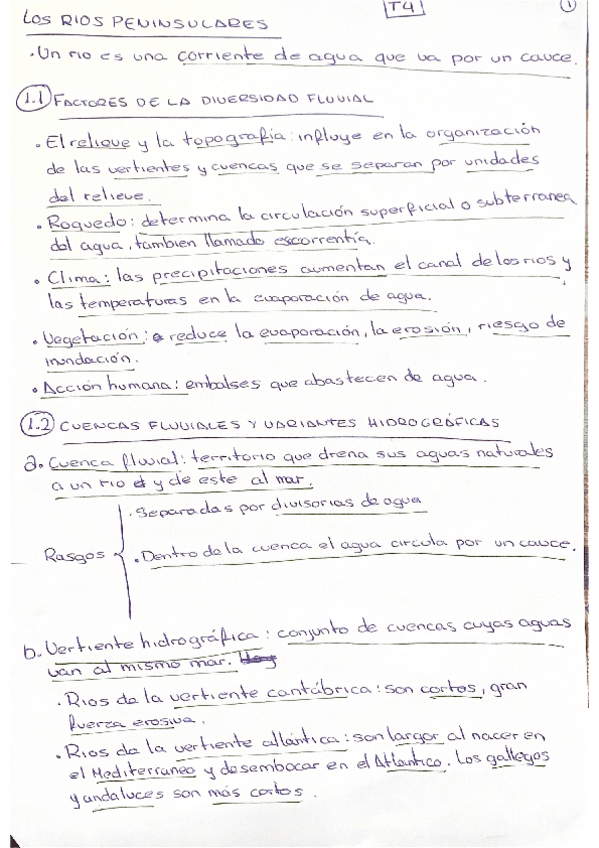 T4 1
LOS RIOS PENINSULARES
· Un rio es una corriente de agua que va por un cauce.
1.1 FACTORES DE LA DIVERSIDAD FLUVIAL
· El relieve y la topografia: influye en la organización
de las vertientes y cuencas que se separan por unidades
del relieve.
· Roquedo: determina la circulación superficial o subterranea
del agua, tambien llamado escorrentía.
· Clima: las precipitaciones aumentan el canal de los rios y
las temperaturas en la evaporación de agua.
· Vegetación: reduce la evaporación, la erosión, riesgo de
inundación.
· Acción humana: embalses que abastecen de agua.
1.2 CUENCAS FLUVIALES Y VARIANTES HIDROGRÁFICAS
a. Cuenca fluvial: territorio que drena sus aguas naturales
a un rio y de este al mar.
Rasgos
· Separadas por divisorias de agua
· Dentro de la cuenca el agua circula por un cauce.
b. Vertiente hidrográfica: conjunto de cuencas cuyas aguas
van al mismo mar.
· Rios de la vertiente cantábrica: son cortos, gran
fuerza erosiva.
· Rios de la vertiente atlántica: son largor al nacer en
el Mediterraneo y desembocar en el Atlantico. Los gallegos
y andaluces son más cortos.